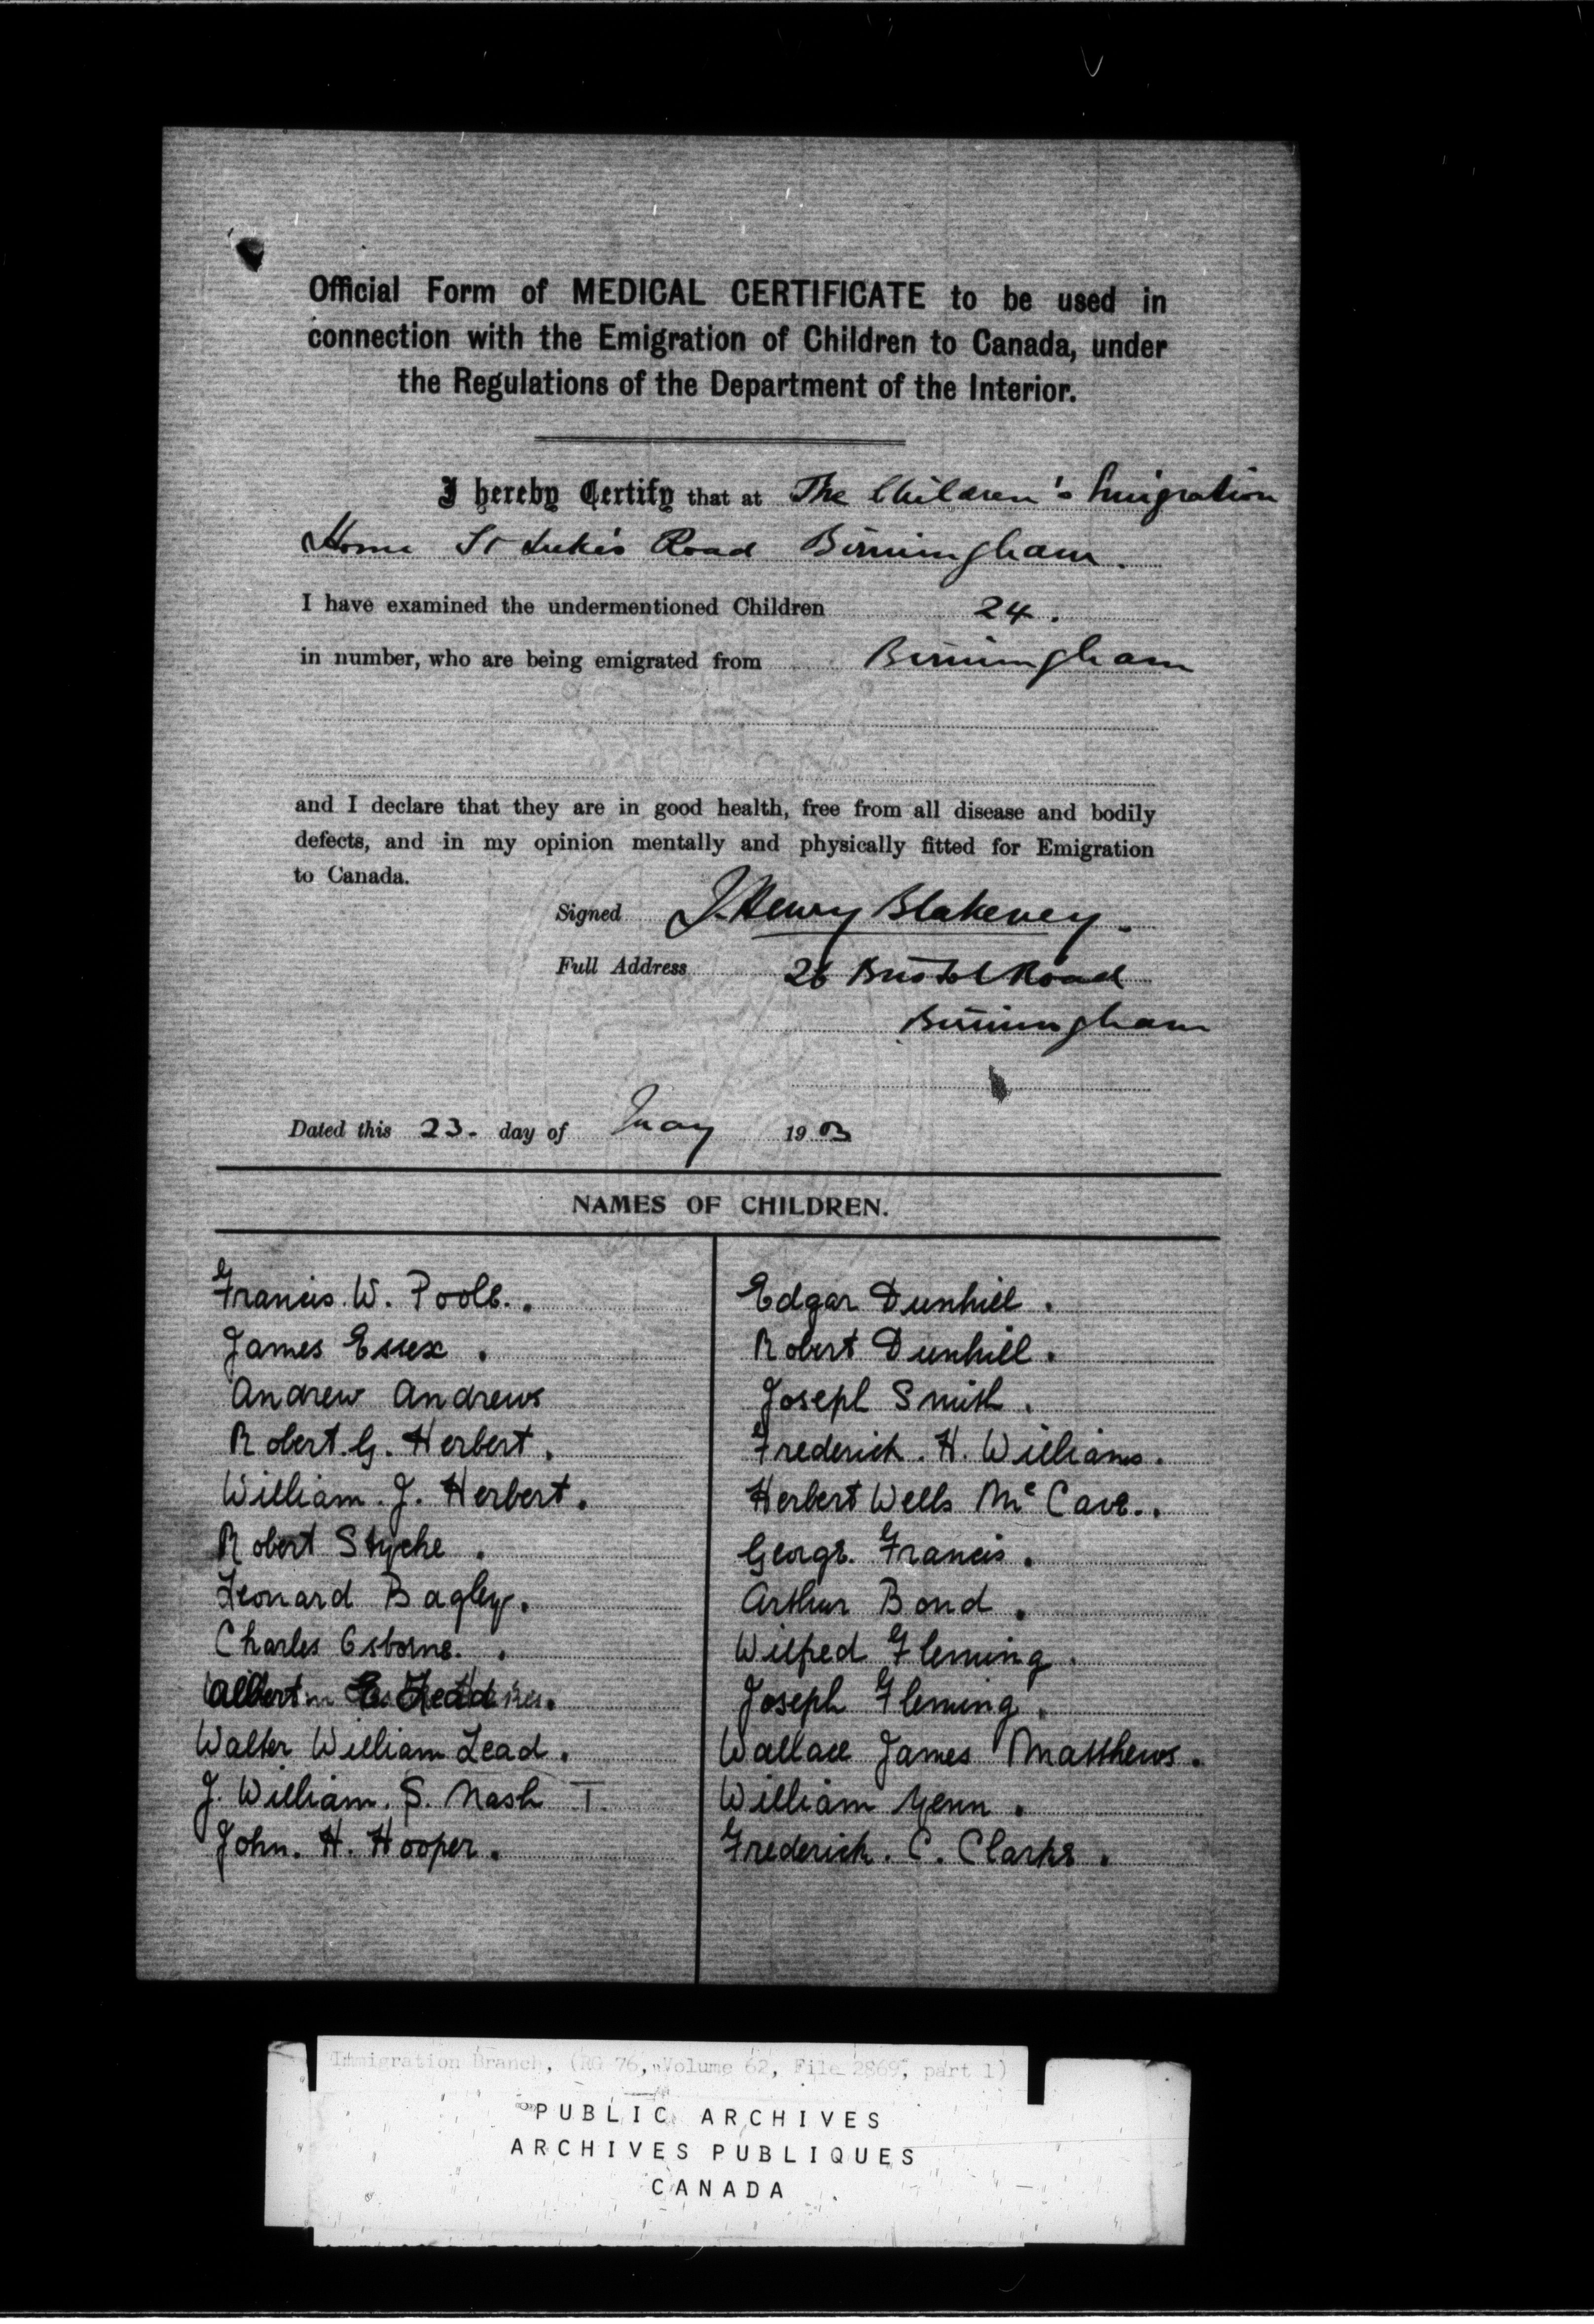 Official Form of MEDICAL CERTIFICATE to be used in
connection with the Emigration of Children to Canada, under
the Regulations of the Department of the Interior.
I hereby Certify that at The Children's Emigration
Home St Luke's Road Birmingham.
I have examined the undermentioned Children 24.
in number, who are being emigrated from Birmingham
and I declare that they are in good health, free from all disease and bodily
defects, and in my opinion mentally and physically fitted for Emigration
to Canada.
Signed J. Henry Blakeney.
Full Address 26 Bristol Road
Birmingham
Dated this 23. day of May 1903
NAMES OF CHILDREN.
Francis. W. Poole.
James Essex.
Andrew Andrews
Robert. G. Herbert.
William. J. Herbert.
Robert Styche.
Leonard Bagley.
Charles Osborne.
Albert E. Lead
Walter William Lead.
J. William. S. Nash T.
John. H. Hooper.
Edgar Dunhill.
Robert Dunhill.
Joseph Smith.
Frederick. H. Williams.
Herbert Wells McCave.
George. Francis.
Arthur Bond.
Wilfred Fleming.
Joseph Fleming.
Wallace James Matthews.
William Yenn.
Frederick. C. Clarke.
Immigration Branch, (RG 76, Volume 62, File 2869, part 1)
PUBLIC ARCHIVES
ARCHIVES PUBLIQUES
CANADA